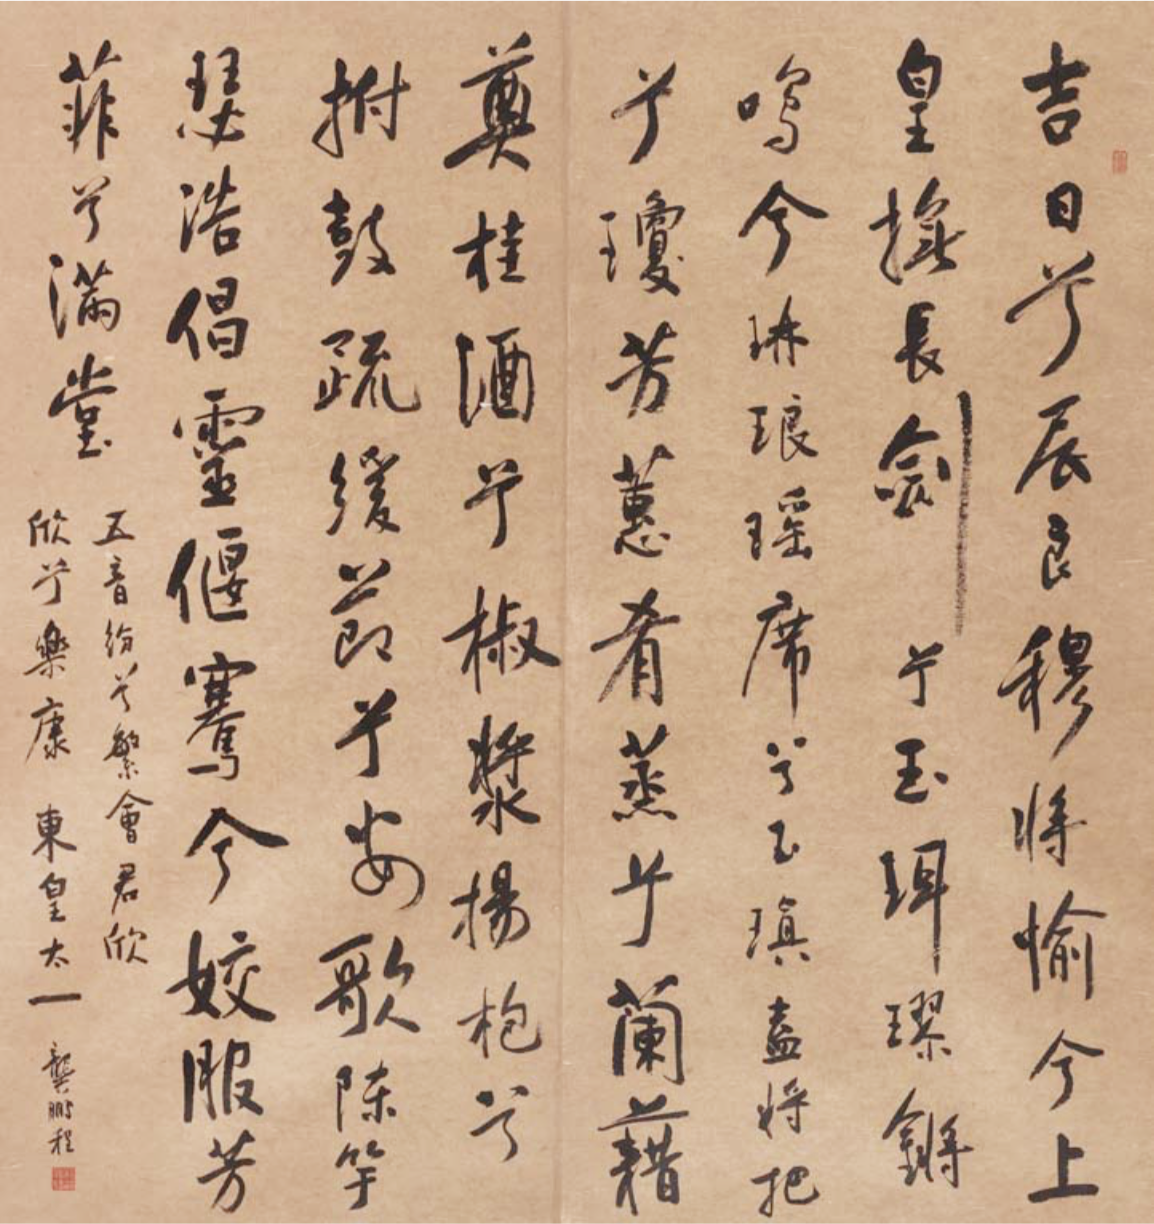 吉日兮辰良穆將愉兮上
皇撫長劍兮玉珥璆鏘
鳴兮琳琅瑤席兮玉瑱盍將把
兮瓊芳蕙肴蒸兮蘭藉
奠桂酒兮椒漿揚枹兮
拊鼓疏緩節兮安歌陳竽
瑟浩倡靈偃騫兮姣服芳
菲兮滿堂
五音紛兮繁會君欣
欣兮樂康 東皇太一 龔鵬程